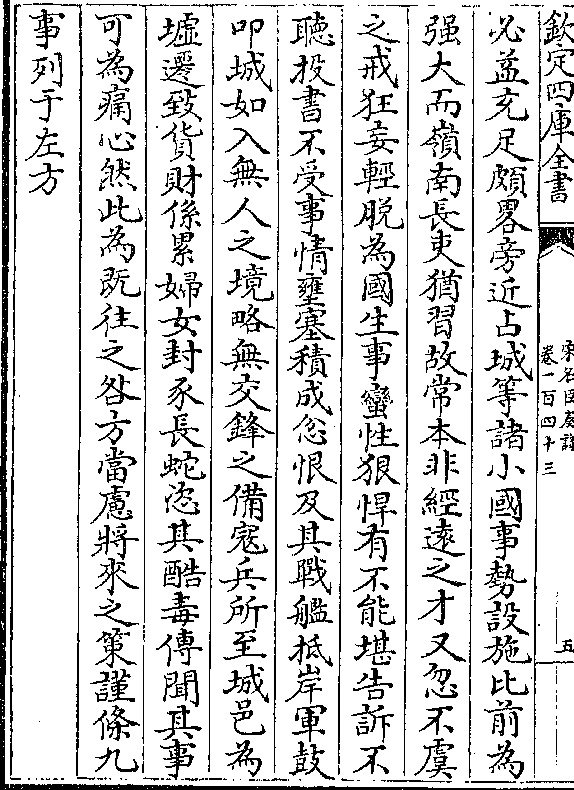 欽定四庫全書
宋名臣奏議
卷一百四十三
五
必益充足頗畧旁近占城等諸小國事勢設施比前為
强大而嶺南長吏猶習故常本非經遠之才又忽不虞
之戒狂妄輕脫為國生事蠻性狠悍有不能堪告訴不
聽投書不受事情壅塞積成忿恨及其戰艦抵岸軍鼓
叩城如入無人之境略無交鋒之備寇兵所至城邑為
墟遷致貨財係累婦女封豕長蛇恣其酷毒傳聞其事
可為痛心然此為既往之咎方當慮將來之策謹條九
事列于左方